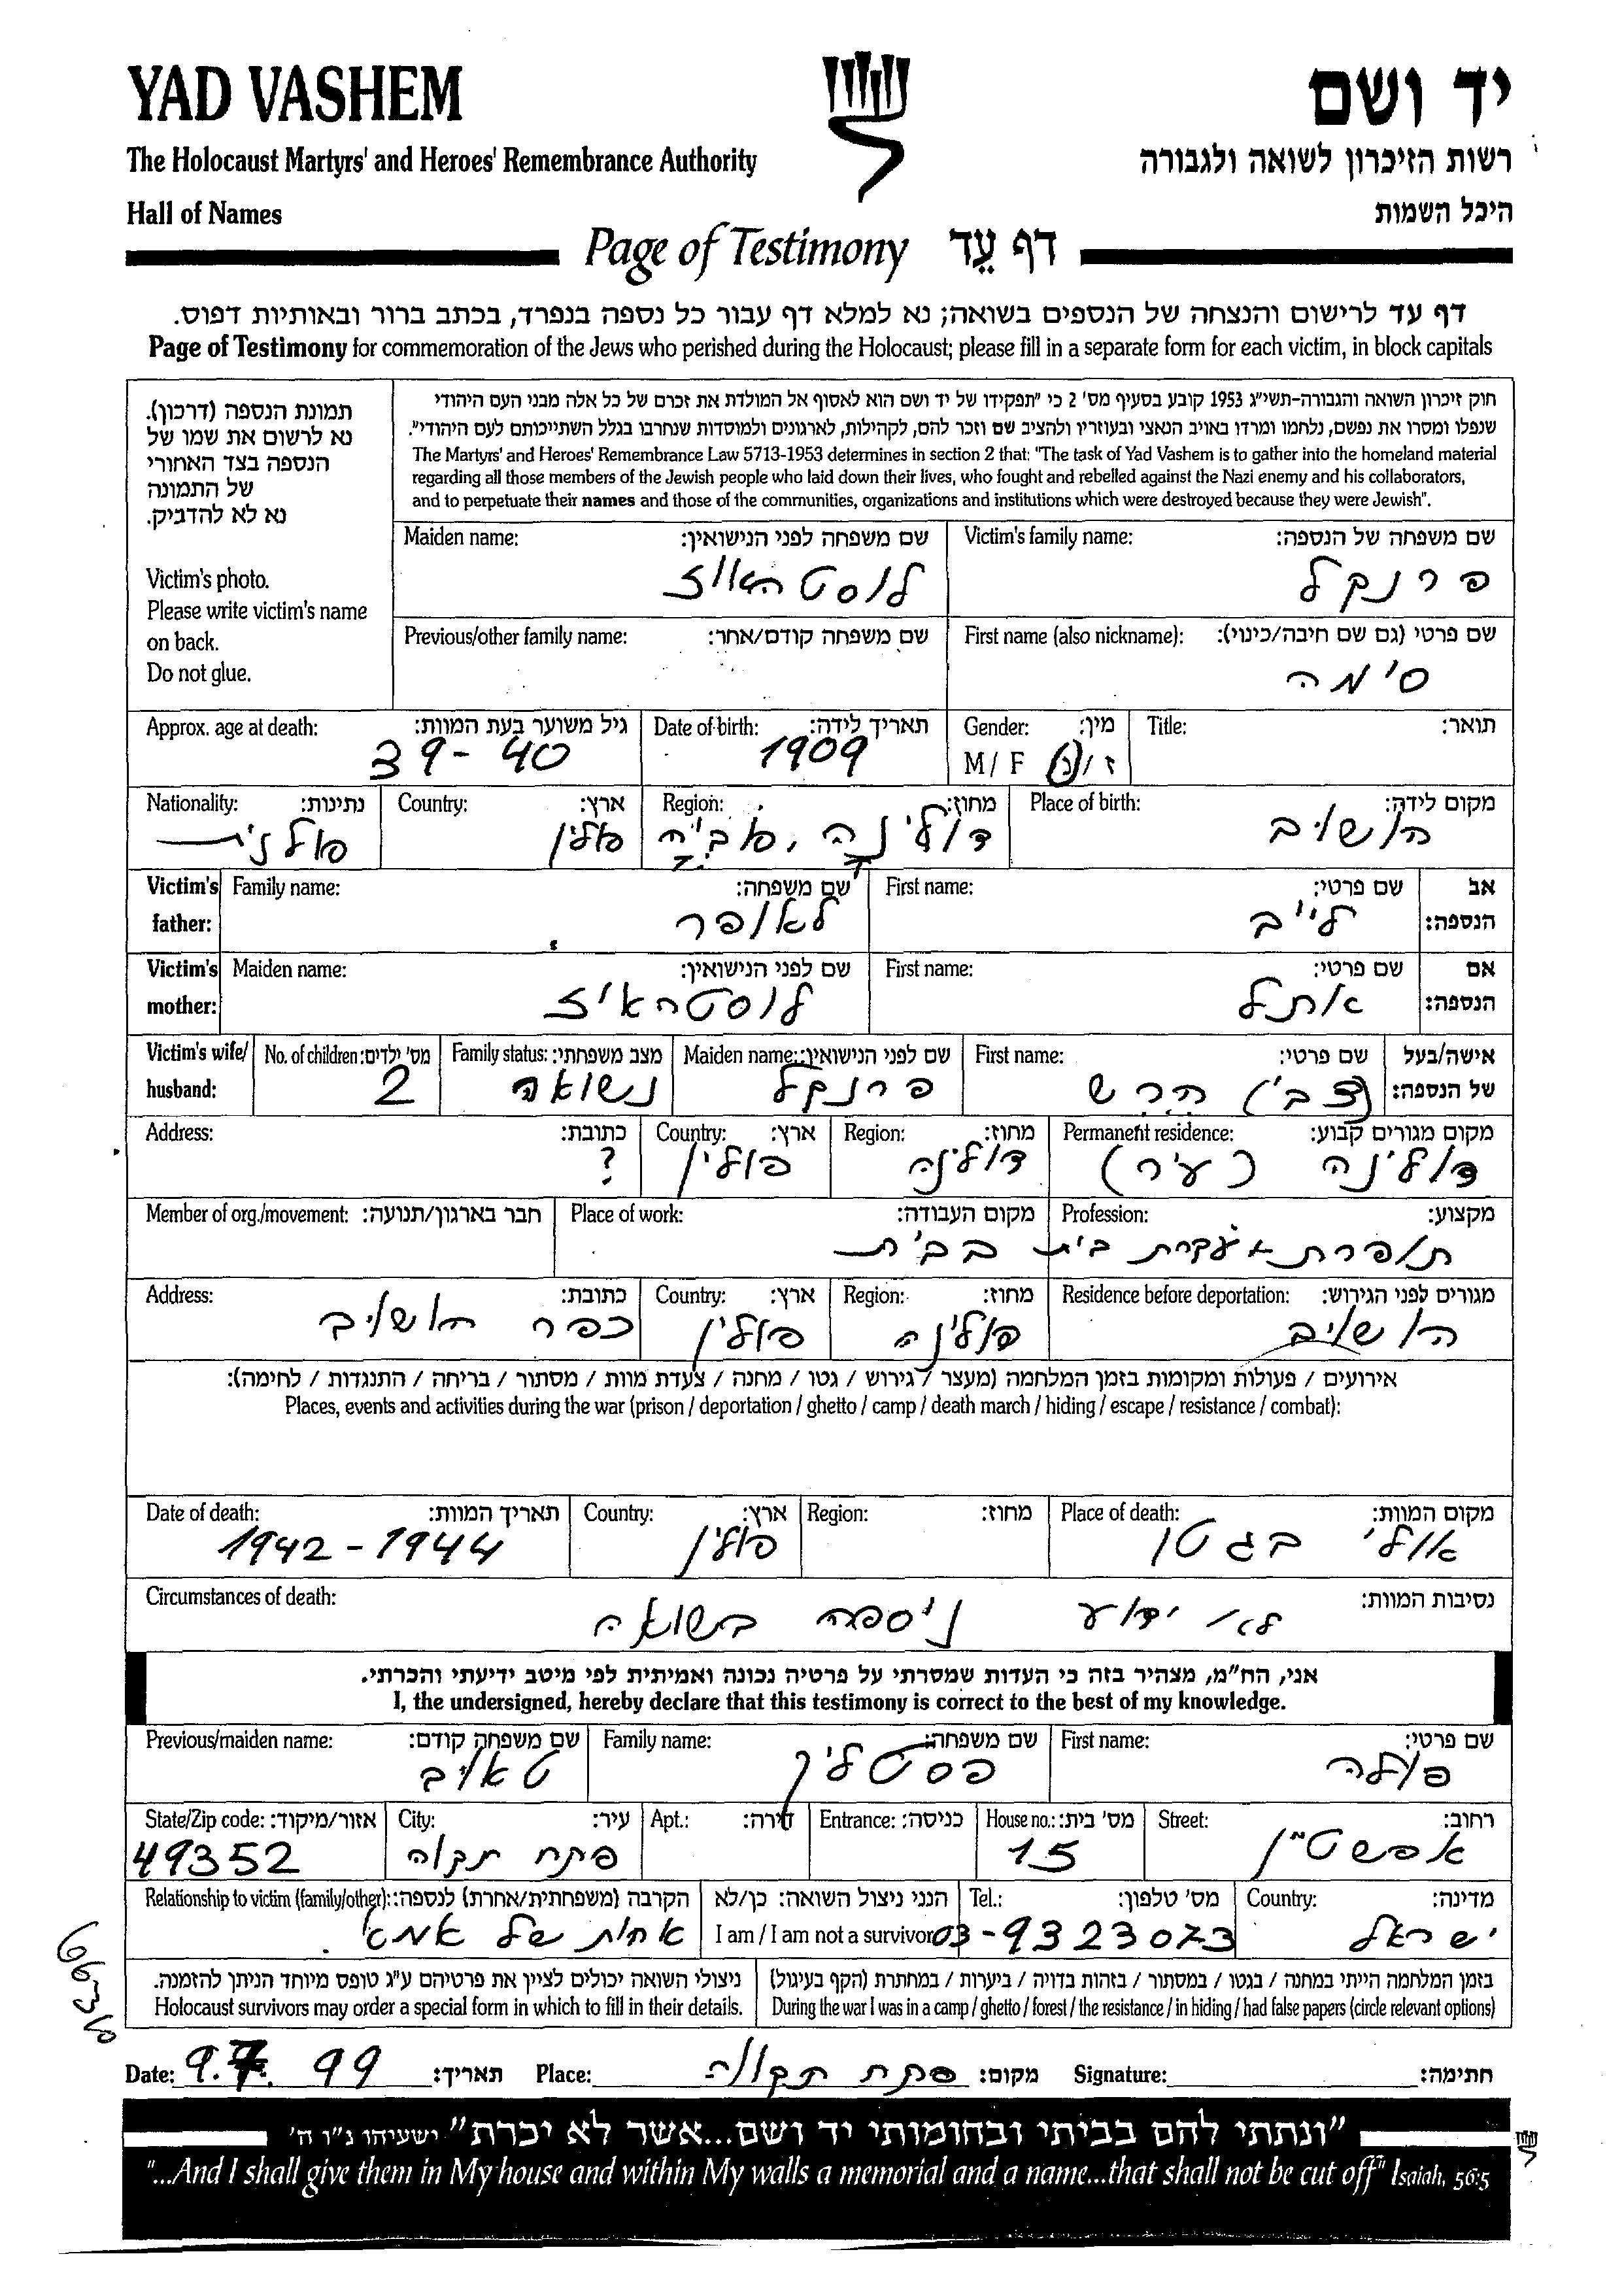 YAD VASHEM
יד ושם
The Holocaust Martyrs' and Heroes' Remembrance Authority
רשות הזיכרון לשואה ולגבורה
Hall of Names
היכל השמות
Page of Testimony דף עֵד
דף עד לרישום והנצחה של הנספים בשואה; נא למלא דף עבור כל נספה בנפרד, בכתב ברור ובאותיות דפוס.
Page of Testimony for commemoration of the Jews who perished during the Holocaust; please fill in a separate form for each victim, in block capitals
תמונת הנספה (דרכון).
נא לרשום את שמו של
הנספה בצד האחורי
של התמונה
נא לא להדביק.
Victim's photo.
Please write victim's name
on back.
Do not glue.
חוק זיכרון השואה והגבורה-תשי"ג 1953 קובע בסעיף מס' 2 כי "תפקידו של יד ושם הוא לאסוף אל המולדת את זכרם של כל אלה מבני העם היהודי
שנפלו ומסרו את נפשם, נלחמו ומרדו באויב הנאצי ובעוזריו ולהציב שם וזכר להם, לקהילות, לארגונים ולמוסדות שנחרבו בגלל השתייכותם לעם היהודי".
The Martyrs' and Heroes' Remembrance Law 5713-1953 determines in section 2 that: "The task of Yad Vashem is to gather into the homeland material
regarding all those members of the Jewish people who laid down their lives, who fought and rebelled against the Nazi enemy and his collaborators,
and to perpetuate their names and those of the communities, organizations and institutions which were destroyed because they were Jewish".
Victim's family name: שם משפחה של הנספה:
פרנקל
Maiden name: שם משפחה לפני הנישואין:
First name (also nickname): שם פרטי (גם שם חיבה/כינוי):
סימה
Previous/other family name: שם משפחה קודם/אחר:
Title: תואר:
Gender: מין:
M / F ז / נ
Date of birth: תאריך לידה:
1909
Approx. age at death: גיל משוער בעת המוות:
39-40
Place of birth: מקום לידה:
השוליב
Region: מחוז:
דולינה,
Country: ארץ:
פולין
Nationality: נתינות:
פולנית
Victim's father: אב הנספה:
First name: שם פרטי:
לייב
Family name: שם משפחה:
לאופר
Victim's mother: אם הנספה:
First name: שם פרטי:
אתל
Maiden name: שם לפני הנישואין:
לוסטהאיז
Victim's wife/husband: אישה/בעל של הנספה:
First name: שם פרטי:
(צבי) הרש
Maiden name: שם לפני הנישואין:
פרנקל
Family status: מצב משפחתי:
נשואה
No. of children: מס' ילדים:
2
Permanent residence: מקום מגורים קבוע:
דולינה (עיר)
Region: מחוז:
דולינה
Country: ארץ:
פולין
Address: כתובת:
?
Profession: מקצוע:
תופרת עקרת בית
Place of work: מקום העבודה:
בבית
Member of org./movement: חבר בארגון/תנועה:
Residence before deportation: מגורים לפני הגירוש:
Region: מחוז:
Country: ארץ:
פולין
Address: כתובת:
כפר
אירועים / פעולות ומקומות בזמן המלחמה (מעצר / גירוש / גטו / מחנה / צעדת מוות / מסתור / בריחה / התנגדות / לחימה):
Places, events and activities during the war (prison / deportation / ghetto / camp / death march / hiding / escape / resistance / combat):
Place of death: מקום המוות:
אולי בגטו
Region: מחוז:
Country: ארץ:
פולין
Date of death: תאריך המוות:
1942-1944
Circumstances of death: נסיבות המוות:
לא ידוע ניספה בשואה
אני, הח"מ, מצהיר בזה כי העדות שמסרתי על פרטיה נכונה ואמיתית לפי מיטב ידיעתי והכרתי.
I, the undersigned, hereby declare that this testimony is correct to the best of my knowledge.
First name: שם פרטי:
פולה
Family name: שם משפחה:
פסטלין
Previous/maiden name: שם משפחה קודם:
טאוב
Street: רחוב:
House no.: מס' בית:
15
Entrance: כניסה:
Apt.: דירה:
City: עיר:
פתח תקוה
State/Zip code: אזור/מיקוד:
49352
Country: מדינה:
ישראל
Tel.: מס' טלפון:
03-9323073
הנני ניצול השואה: כן/לא
I am / I am not a survivor
Relationship to victim (family/other): הקרבה (משפחתית/אחרת) לנספה:
אחות של אמא
בזמן המלחמה הייתי במחנה / בגטו / במסתור / בזהות בדויה / ביערות / במחתרת (הקף בעיגול)
During the war I was in a camp / ghetto / forest / the resistance / in hiding / had false papers (circle relevant options)
ניצולי השואה יכולים לציין את פרטיהם ע"ג טופס מיוחד הניתן להזמנה.
Holocaust survivors may order a special form in which to fill in their details.
Date: 9.7.99 תאריך: Place: פתח תקווה מקום: Signature: חתימה:
"ונתתי להם בביתי ובחומותי יד ושם...אשר לא יכרת" ישעיהו נ"ו ה'
"...And I shall give them in My house and within My walls a memorial and a name...that shall not be cut off" Isaiah, 56:5